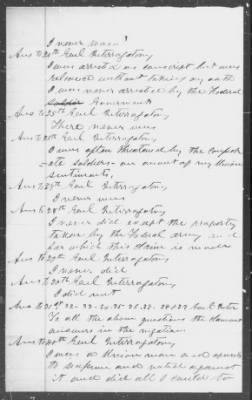 I never was
Ans to 24th Genl Interrogatory
I was arrested as conscript but was
released without taking any oath
I was never arrested by the Federal
Government
Ans to 25th Genl Interrogatory
There never was
Ans to 26th Genl Interrogatory
I was often threatened by the Confeder
ate soldiers on account of my Union
sentiments.
Ans to 27th Genl Interrogatory
I never was
Ans to 28th Genl Interrogatory
I never did except the property
taken by the Federal army and
for which this claim is made
Ans to 29th Genl Interrogatory
I never did
Ans to 30th Genl Interrogatory
I did not
Ans to 31st 32- 33-
To all the above questions the claimant
answers in the negative
Ans to 40th Genl Interrogatory
I was a Union man and opposed
to and voted against
it and did all I